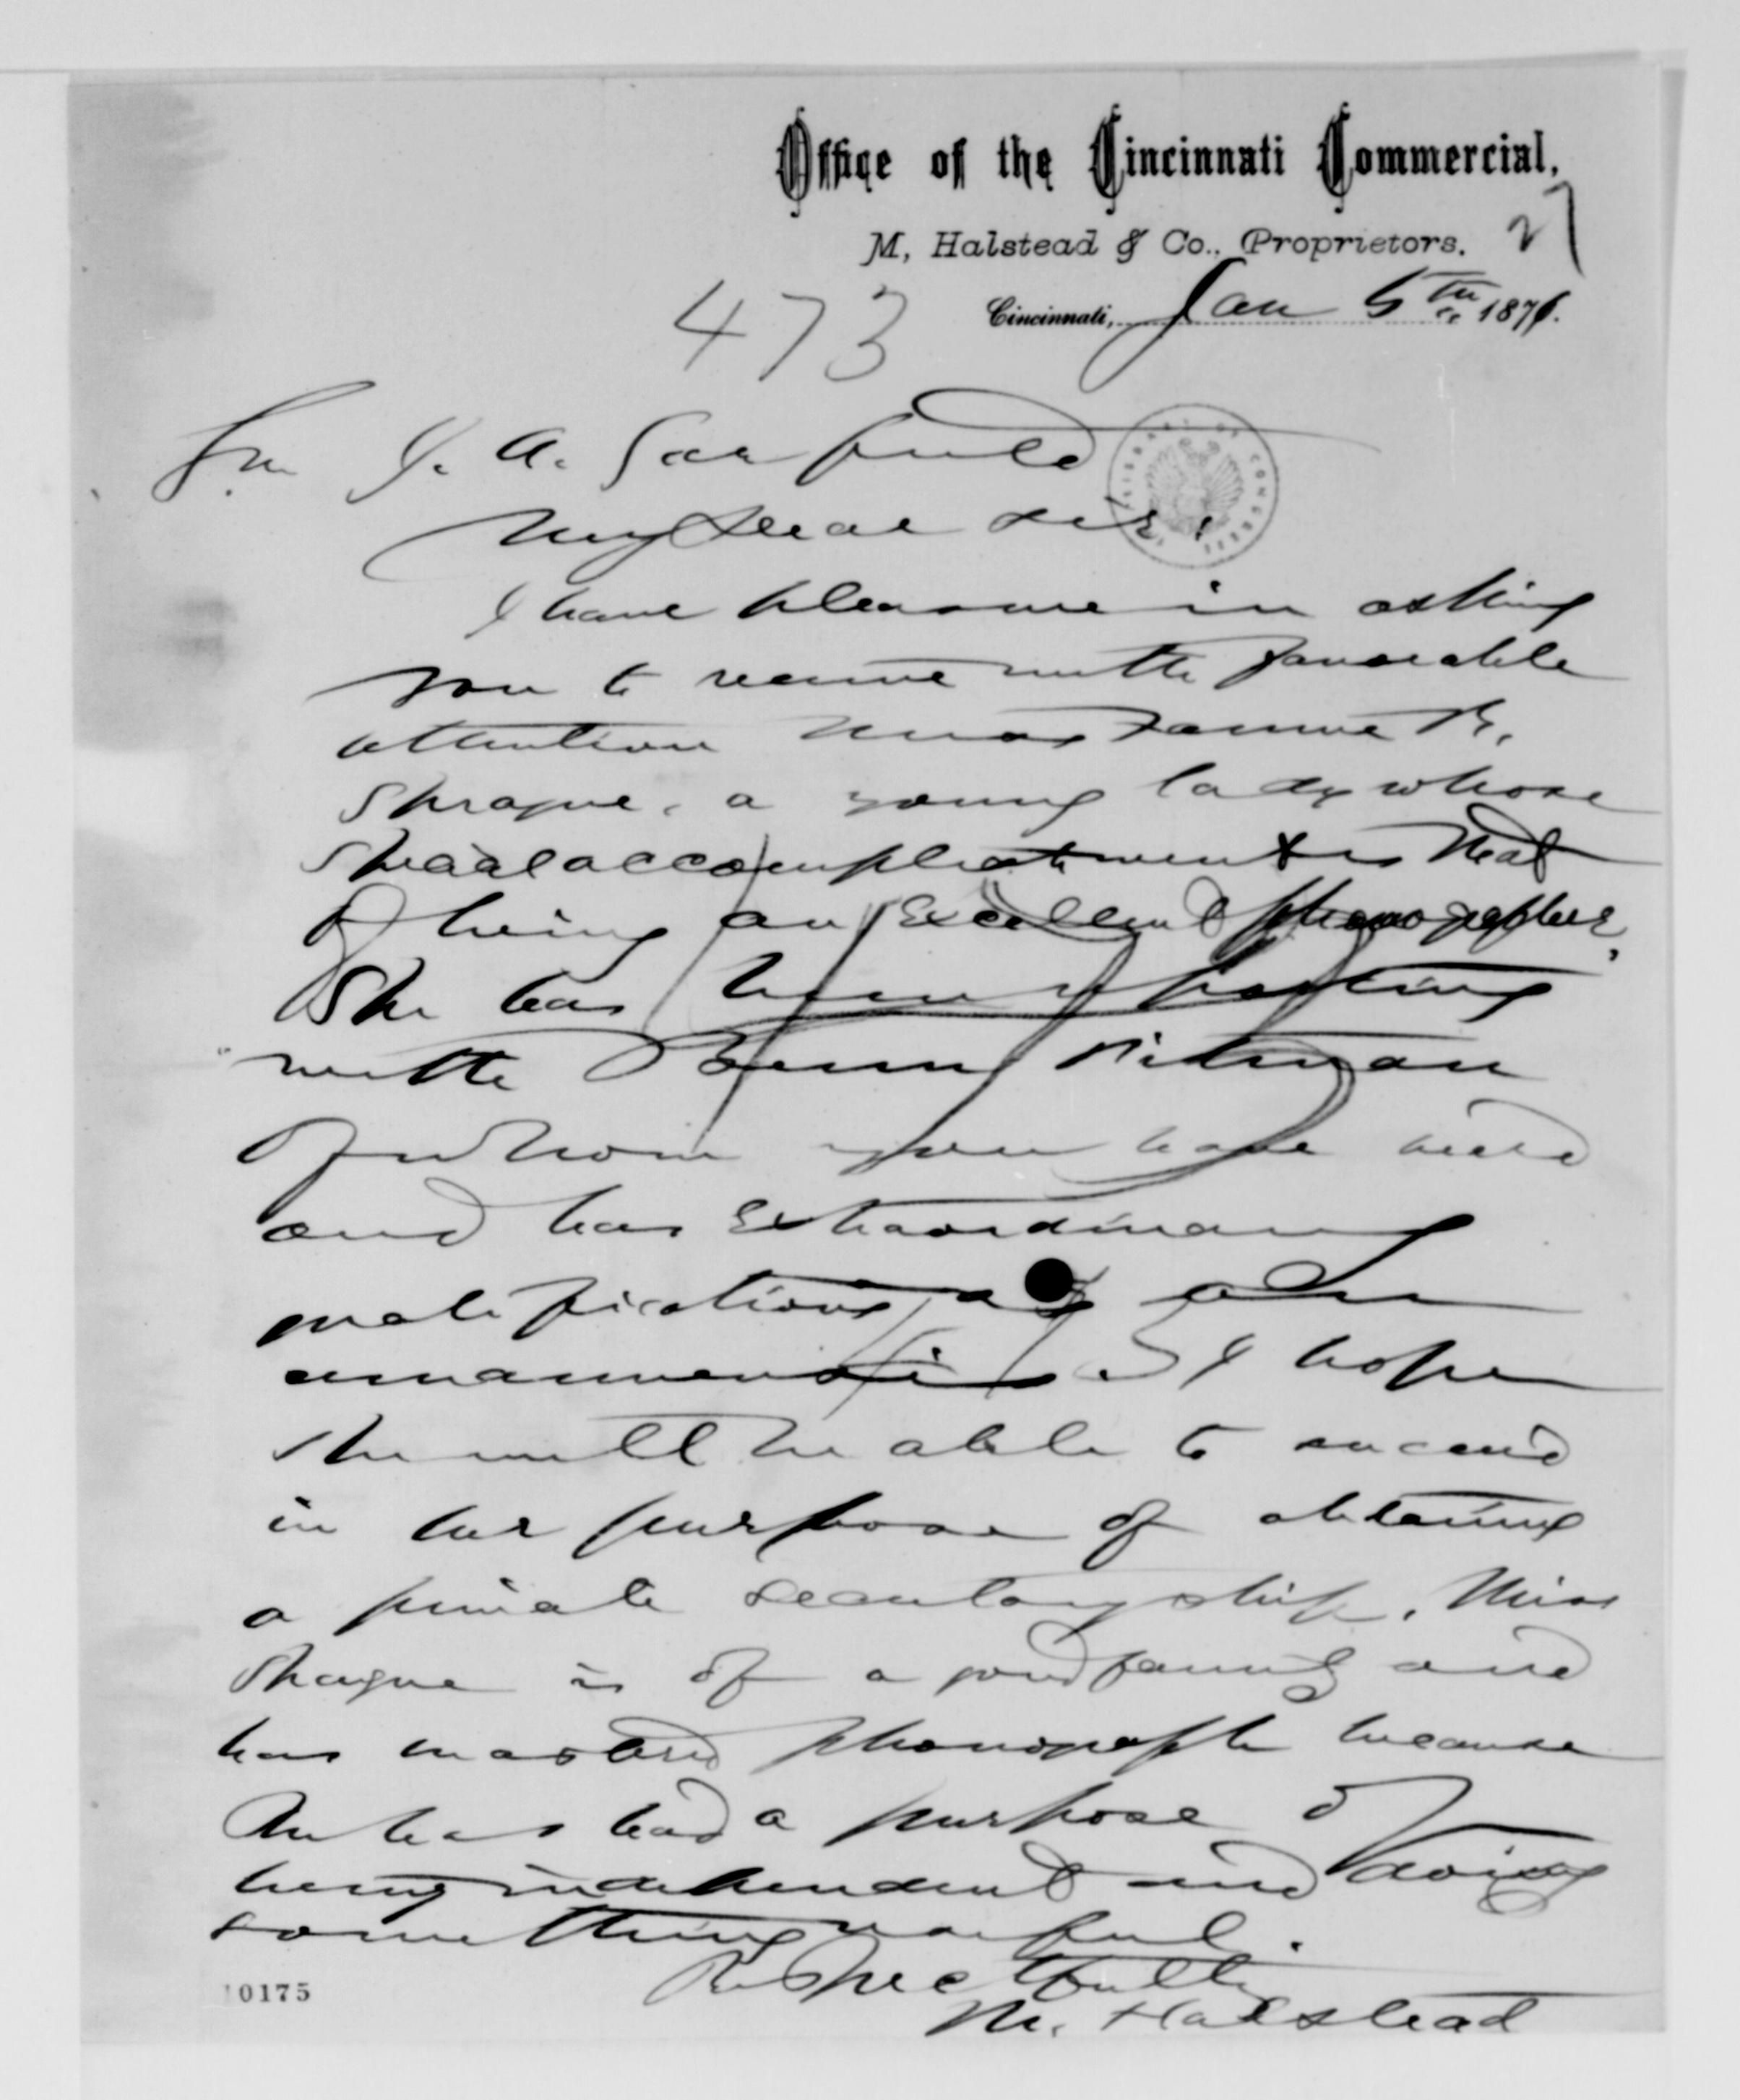 Office of the Cincinnati Commercial,
M, Halstead & Co., Proprietors.
27
473
Cincinnati, Jan 5th 1876.
Gen J. A. Garfield
My dear sir:
I have pleasure in asking
you to receive with favorable
attention Miss Fannie B.
Sprague, a young lady whose
special accomplishment is that
of being an excellent phonographer.
She has been reporting
with Benn Pitman
of whom you have heard
and has extraordinary
qualifications as an
amanuensis. I hope
she will be able to succeed
in her purpose of obtaining
a private secretaryship. Miss
Sprague is of a good family and
has mastered phonography because
she has had a purpose of
being independent and doing
something useful.
Respectfully
M. Halstead
10175